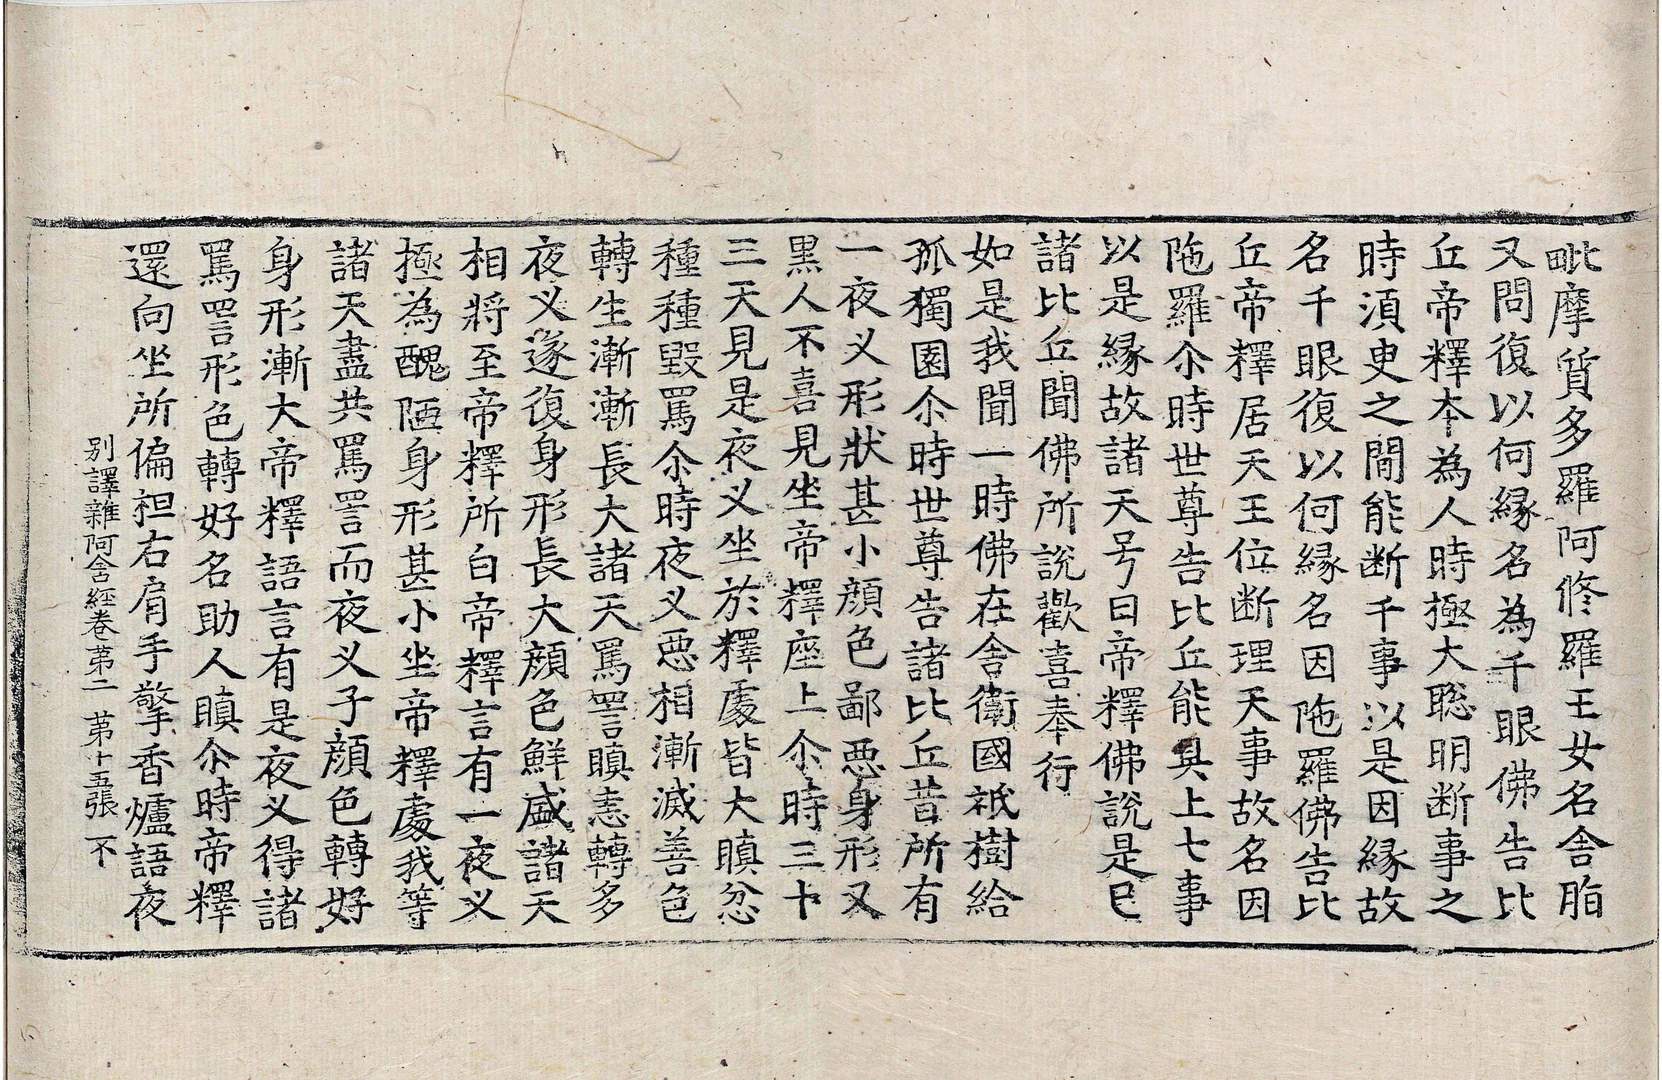 毗摩質多羅阿修羅王女名舍脂
又問復以何縁名為千眼佛告比
丘帝釋夲為人時極大聡明断事之
時湏叟之閒能断千事以是因縁故
名千眼復以何縁名因陁羅佛告比
丘帝釋居天王位断理天事故名因
陁羅尒時世尊告比丘能具上七事
以是縁故諸天号曰帝釋佛說是已
諸比丘聞佛所說歡喜奉行
如是我聞一時佛在舎衛國祇樹給
孤獨園尒時世尊告諸比丘昔所有
一夜义形狀甚小顔色鄙惡身形又
黒人不喜見坐帝釋座上尒時三十
三天見是夜义坐於釋處皆大瞋忿
種種毀罵尒時夜义惡相漸滅善色
轉生漸漸長大諸天罵詈瞋恚轉多
夜义遂復身形長大顔色鮮盛諸天
相將至帝釋所白帝釋言有一夜义
極為醜陋身形甚小坐帝釋處我等
諸天盡共罵詈而夜义子顔色轉好
身形漸大帝釋語言有是夜义得諸
罵詈形色轉好名助人瞋尒時帝釋
還向坐所偏袒右肩手擎香爐語夜
别譯雜阿含經卷苐二 苐十五張 不